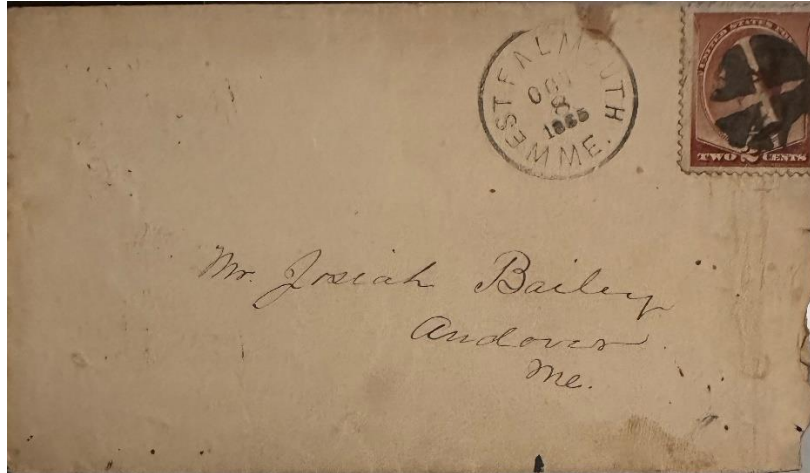 WEST FALMOUTH
OCT
8
WEST ME.
UNITED STATES POS
TWO 2 CENTS
Mr. Josiah Bailey
Andover
Me.